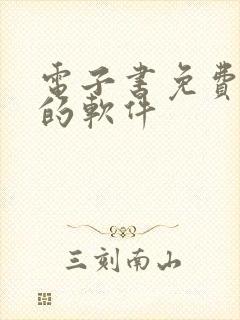 電子書免費
的軟件
三刻南山